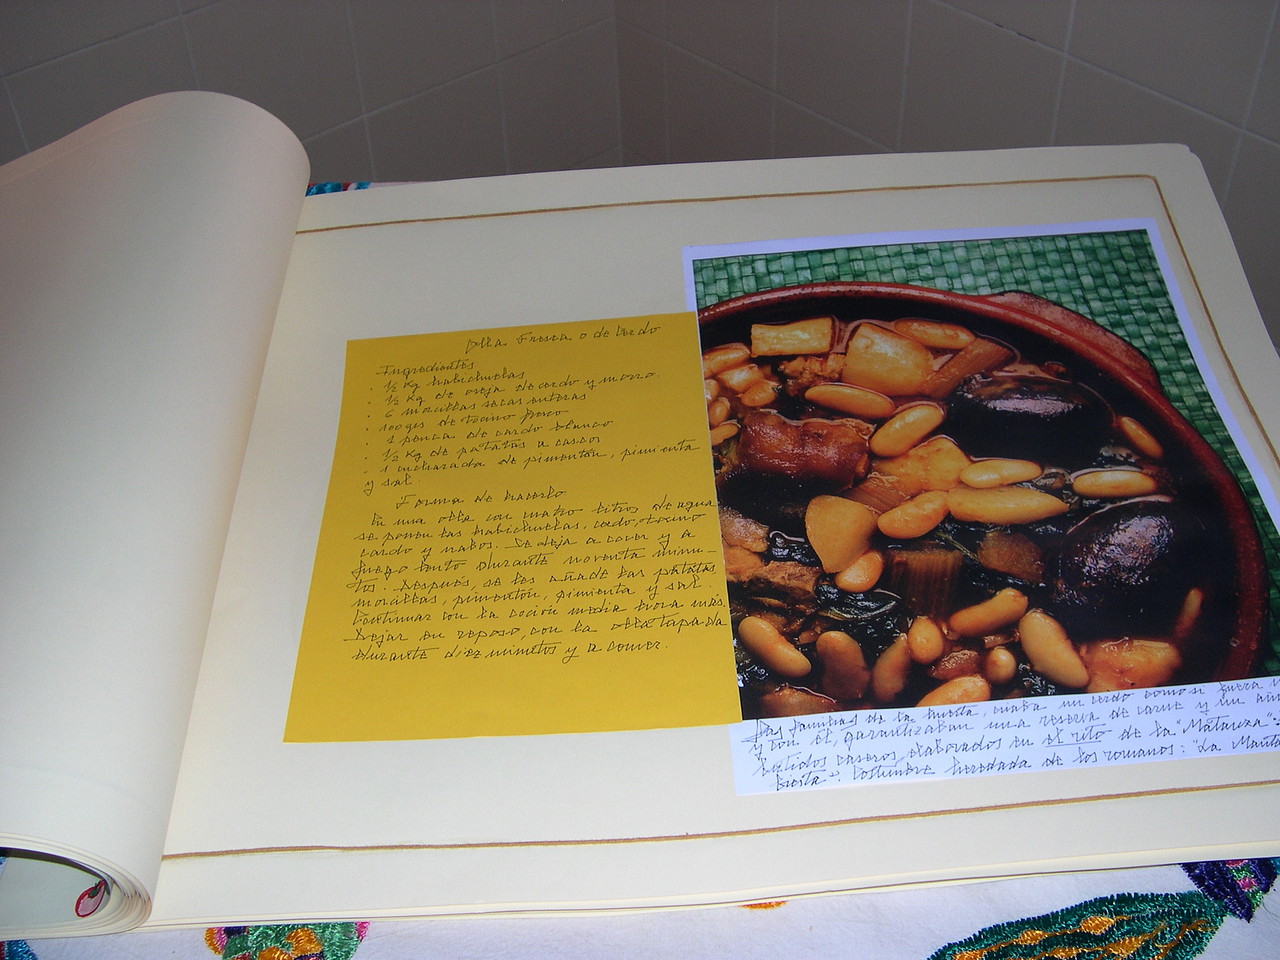 Olla Fresca o de Cerdo
Ingredientes
. ½ Kg habichuelas
. ½ Kg de oreja de cerdo y morro.
. 6 morcillas secas enteras
. 100 grs de tocino fresco
. 1 penca de cardo blanco
. ½ Kg de patatas a cascos
. 1 cucharada de pimentón, pimienta
y sal.
Forma de hacerlo
En una olla con cuatro litros de agua
se ponen las habichuelas, cerdo, tocino
cardo y nabos. Se deja a cocer y a
fuego lento durante noventa minu-
tos. Después, se les añade las patatas
morcillas, pimentón, pimienta y sal.
Continuar con la coción media hora más.
Dejar en reposo, con la olla tapada
durante diez minutos y a comer.
Las familias de la huerta, criaba un cerdo como si fuera
y con él, garantizaban una reserva de carne y un
Embutidos caseros elaborados en el rito de la "Matanza".
fiesta". Costumbre heredada de los romanos: "La